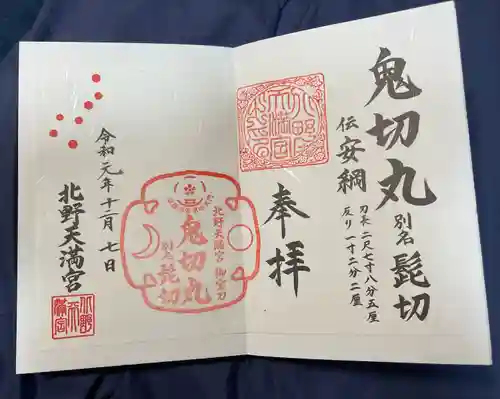 鬼切丸
別名
髭切
伝
安綱
刃長 二尺七寸八分五厘
反り 一寸二分二厘
奉拝
北野天満宮 御宝刀
鬼切丸
別名
髭切
令和元年十二月七日
北野天満宮